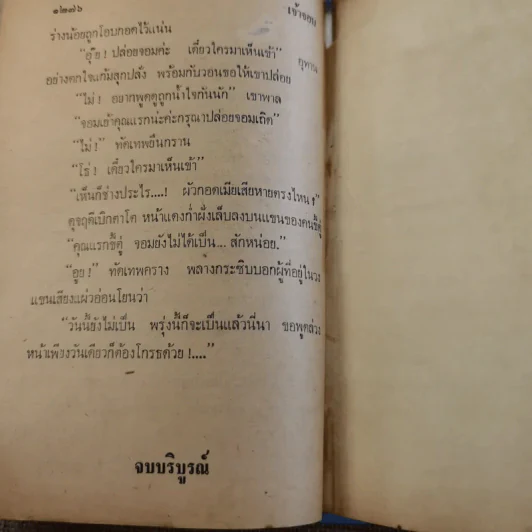 ๑๒๗๖ เจ้าจอม
ร่างน้อยถูกโอบกอดไว้แน่น
“อุ๊ย! ปล่อยจอมค่ะ เดี๋ยวใครมาเห็นเข้า” อุทาน
อย่างตกใจแก้มสุกปลั่ง พร้อมกับวอนขอให้เขาปล่อย
“ไม่! อยากพูดดูถูกน้ำใจกันนัก” เขาพาล
“จอมเย้าคุณแรกน่ะค่ะกรุณาปล่อยจอมเถิด”
“ไม่!” ทัดเทพยืนกราน
“โธ่! เดี๋ยวใครมาเห็นเข้า”
“เห็นก็ช่างประไร....! ผัวกอดเมียเสียหายตรงไหน?”
ดุจฤดีเบิกตาโต หน้าแดงก่ำฝังเล็บลงบนแขนของคนขี้ตู่
“คุณแรกขี้ตู่ จอมยังไม่ได้เป็น... สักหน่อย.”
“อูย!” ทัดเทพคราง พลางกระซิบบอกผู้ที่อยู่ในวง
แขนเสียงแผ่วอ่อนโยนว่า
“วันนี้ยังไม่เป็น พรุ่งนี้ก็จะเป็นแล้วนี่นา ขอพูดล่วง
หน้าเพียงวันเดียวก็ต้องโกรธด้วย!....”
จบบริบูรณ์